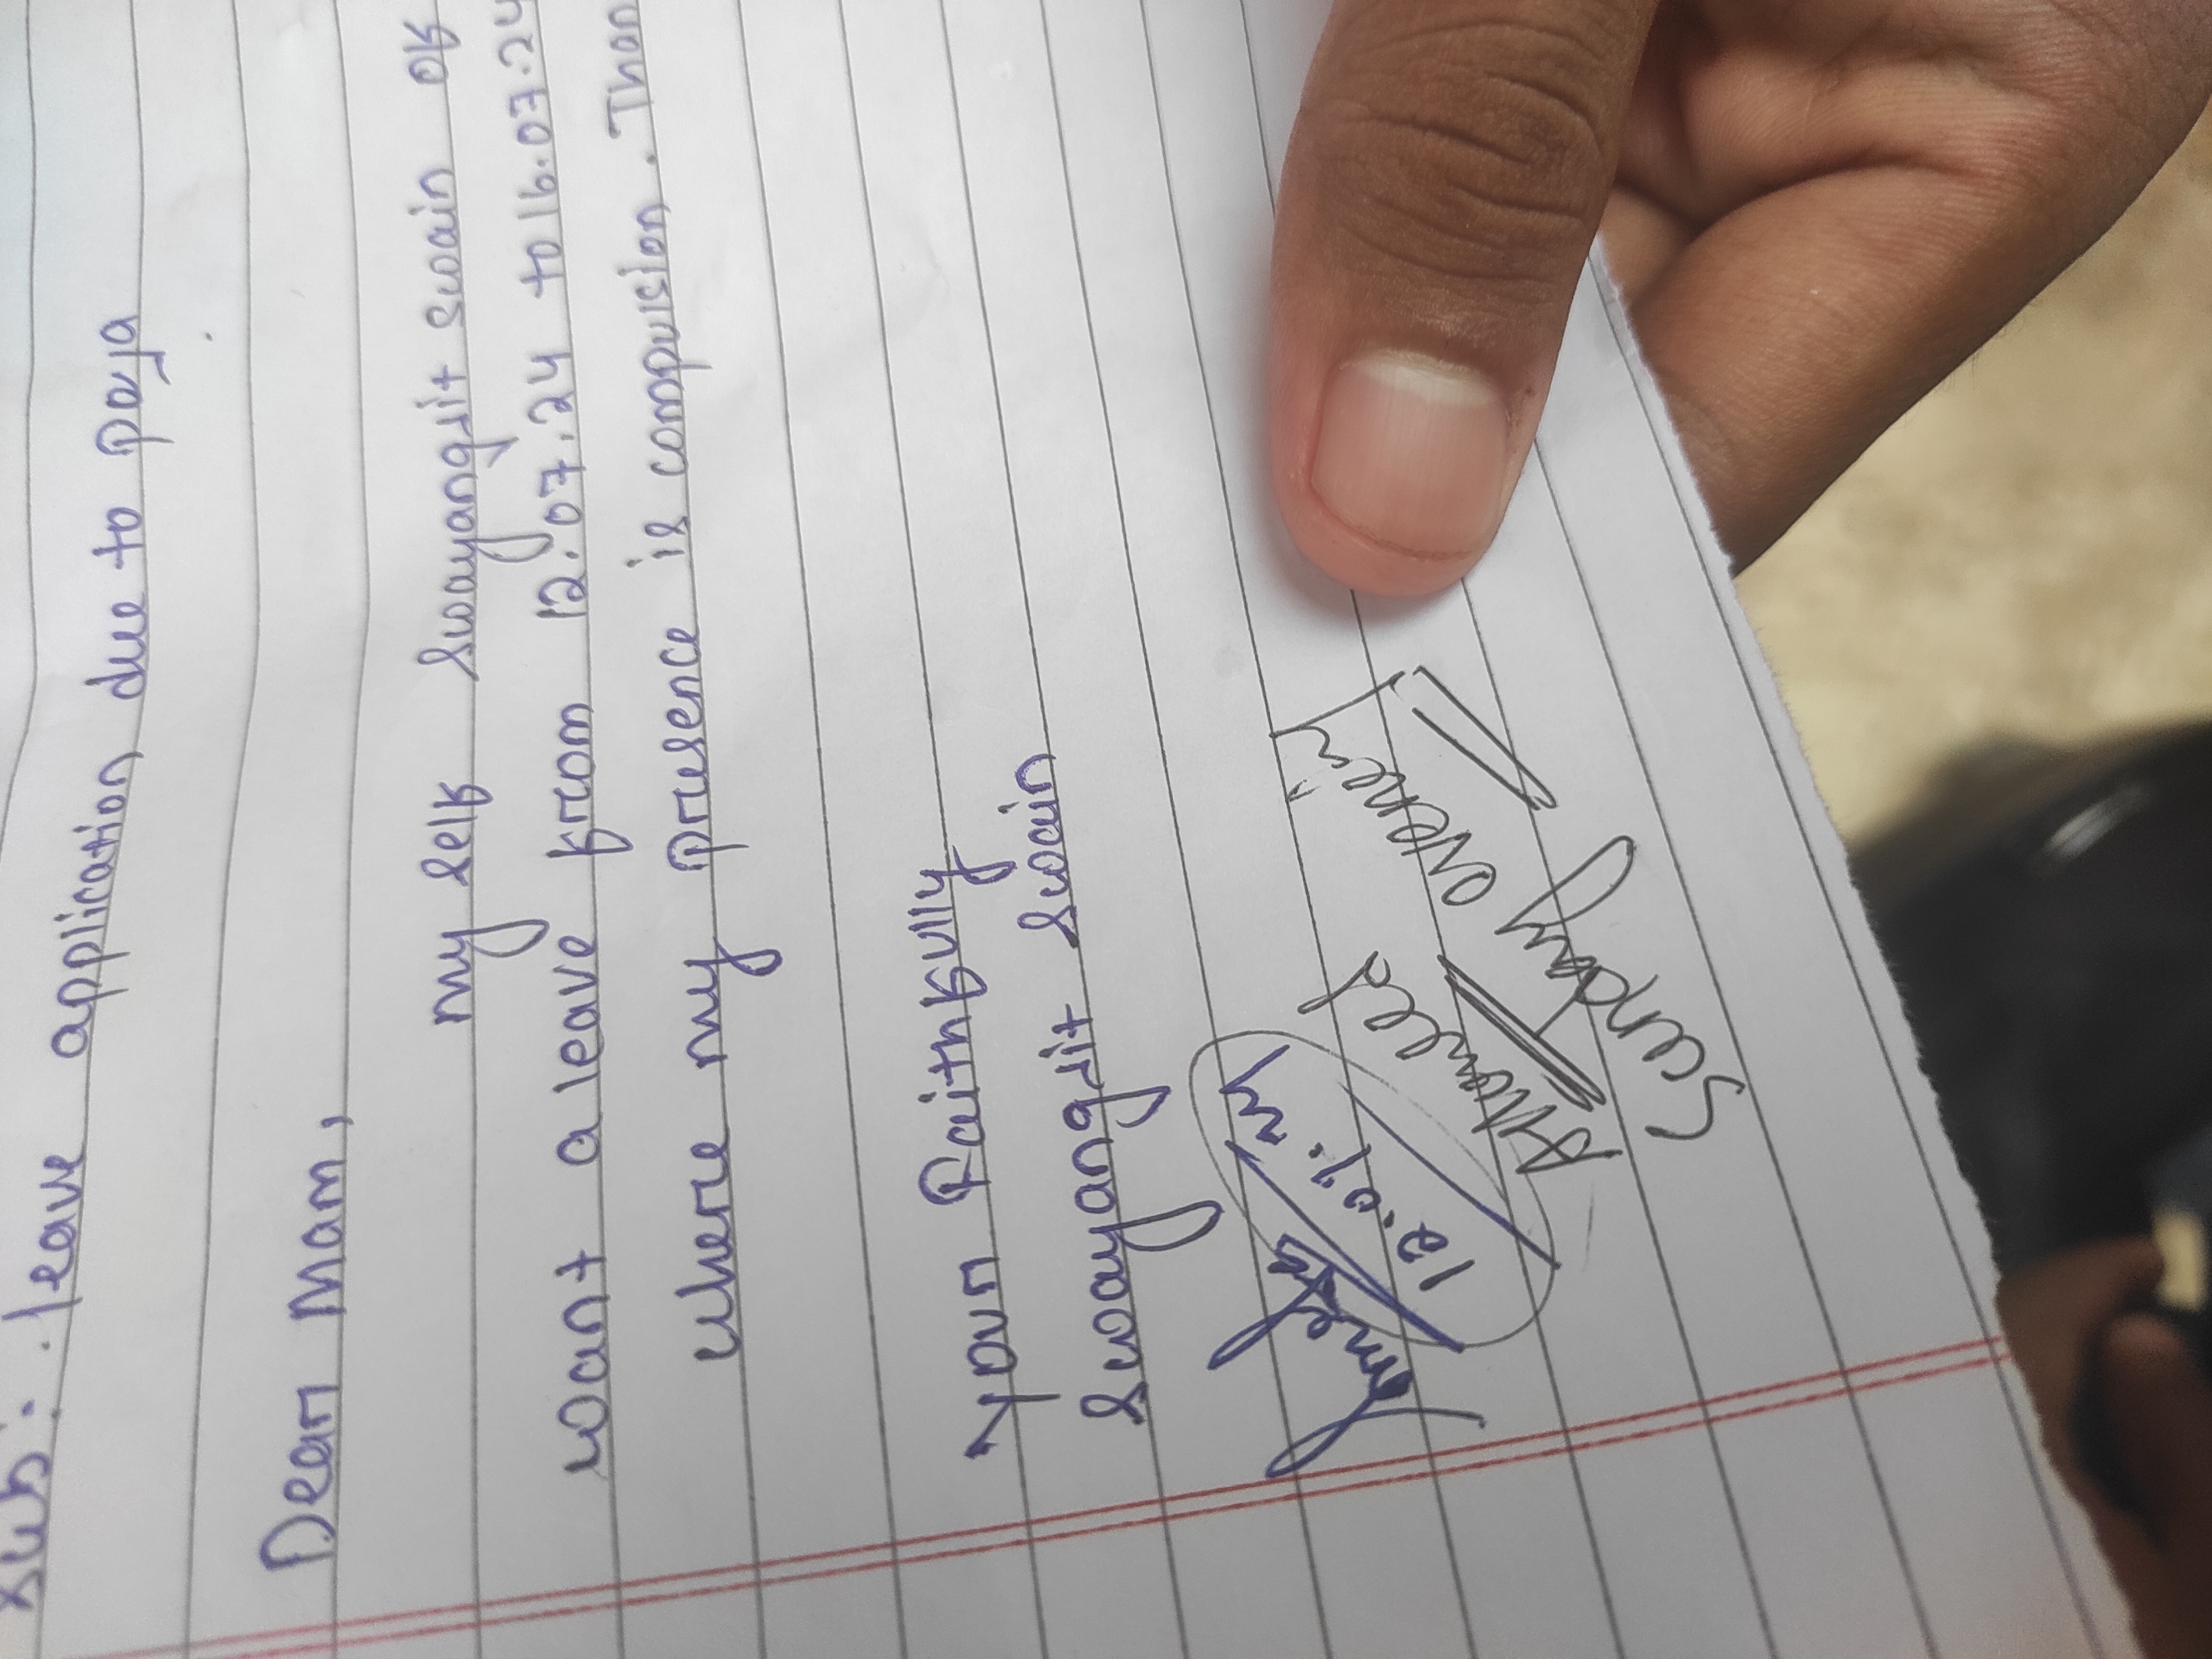 Sub:- leave application due to puja
Dear Mam,
my self Swayangjit swain of
want a leave from 12.07.24 to 16.07.24
where my presence is compulsion. Than
Your Faithfully
Swayangjit Swain
12.07.24
Allowed
Sunday evening